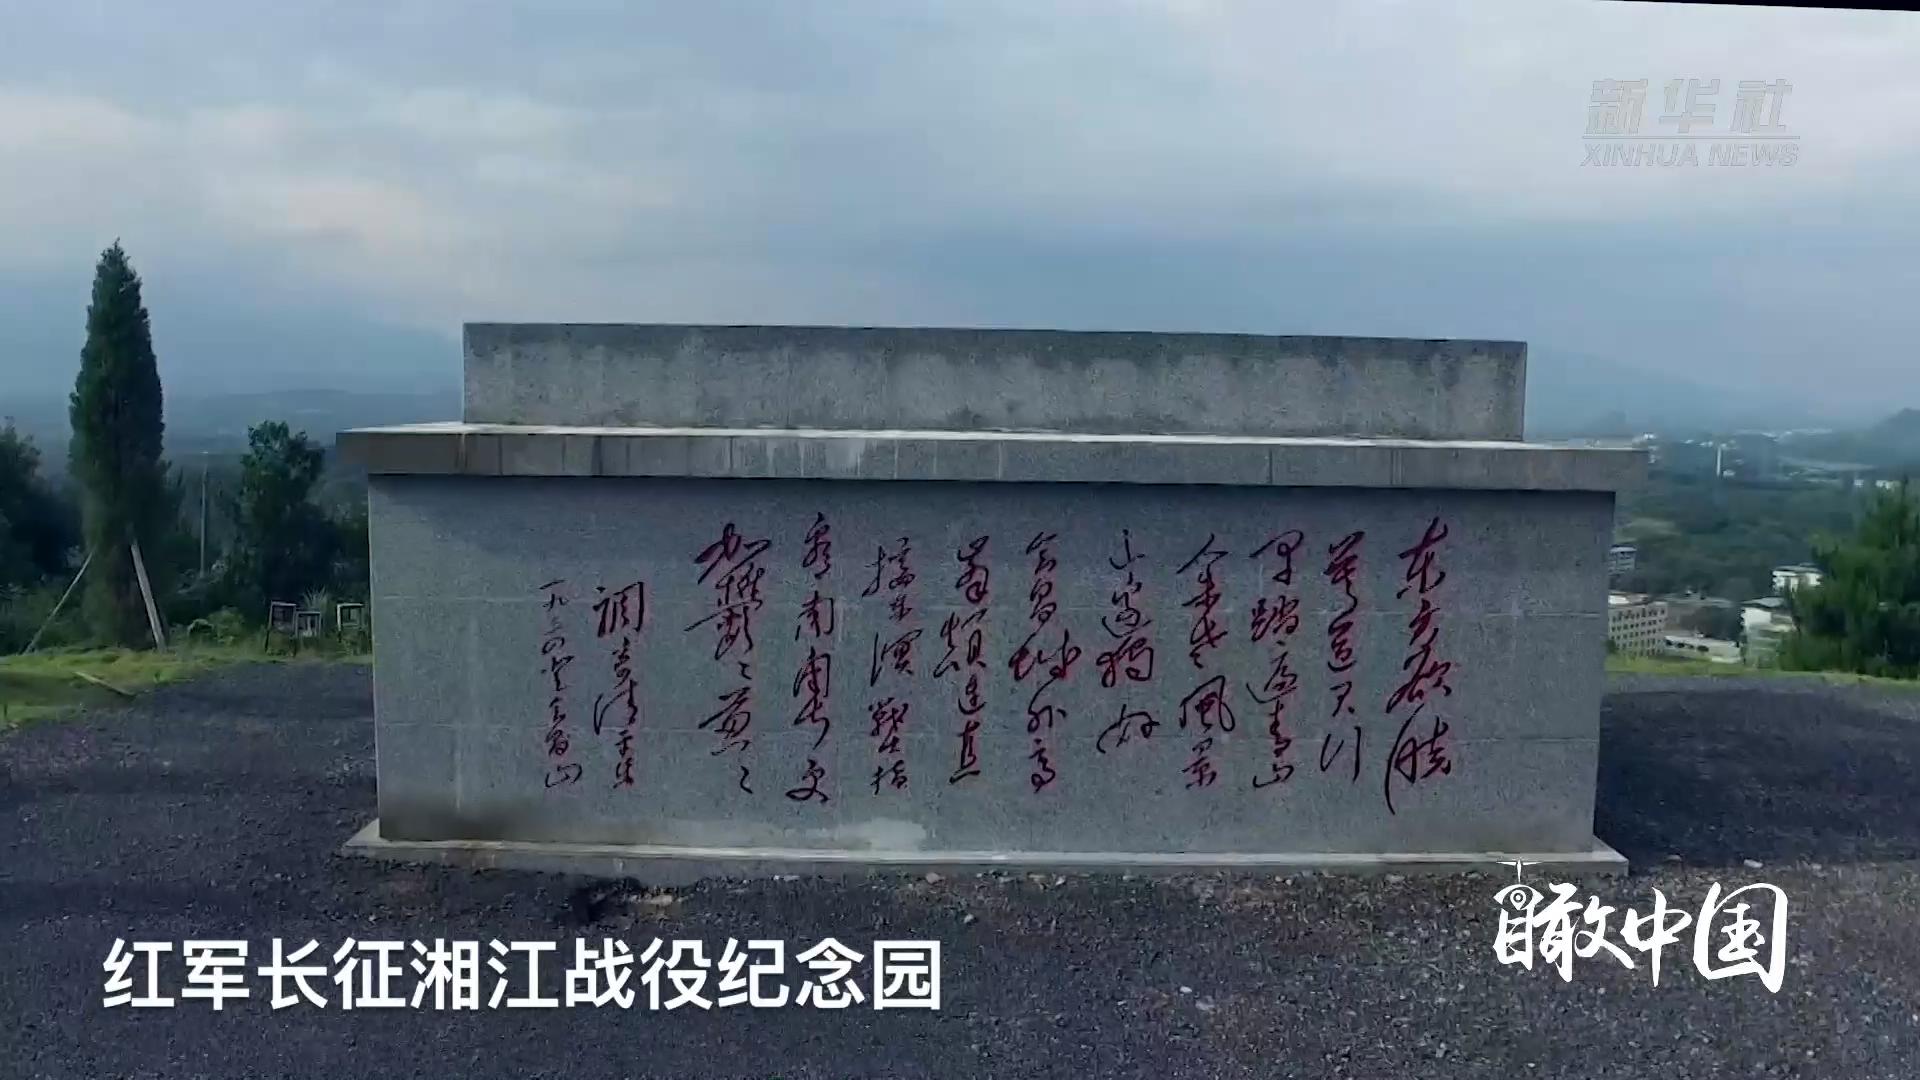 新华社
XINHUA NEWS
东方欲晓
莫道君行
早踏遍青山
人未老風景
这边独好
会昌城外高
峯颠连直
接东溟戰士指
看南粤更
加鬱鬱葱葱
調寄清平乐
一九三四年登会昌山
瞰中国
红军长征湘江战役纪念园